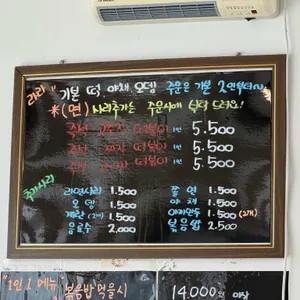 기본 떡, 야채, 오뎅 주문은 기본 2인부터~
※(면) 사리추가는 주문시에 부탁 드려요!
즉석 떡볶이 1인 5.500
즉석 짜장 떡볶이 1인 5.500
즉석 떡볶이 1인 5.500
추가사리
라면사리 1.500
쫄면 1.500
오뎅 1.500
야채 1.500
계란(2개) 1.500
야끼만두 1.500 (2개)
음료수 2.000
볶음밥 2.500
1인 1메뉴
볶음밥 먹을시 14.000 이상